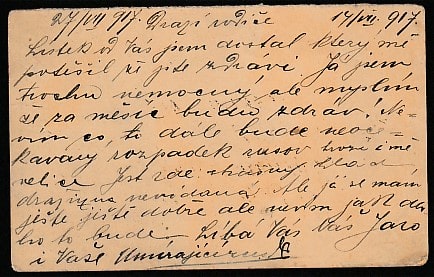 27/VII 917. Drazí rodiče 17/VII. 917.
Lístek od Vás jsem dostal který mě
potěšil že jste zdraví Já jsem
trochu nemocný, ale myslím
že za měsíc budu zdráv! Ne-
vím co to dále bude neoče-
kavaný rozpadek rusov mě
velice Jest zde strašný hlad
drahota nevídaná. Ale já se mám
ještě ještě dobře ale nevím jak dlo-
ho to bude Líbá Vás Váš Jaro
i Vaše